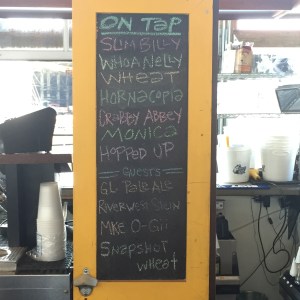 ON TAP
SLIM BILLY
WHOA NELLY
WHEAT
HORNACOPIA
CRABBY ABBEY
MONICA
HOPPED UP
GUESTS
GL PALE ALE
RIVERWEST STEIN
MKE O-GII
SNAPSHOT
WHEAT